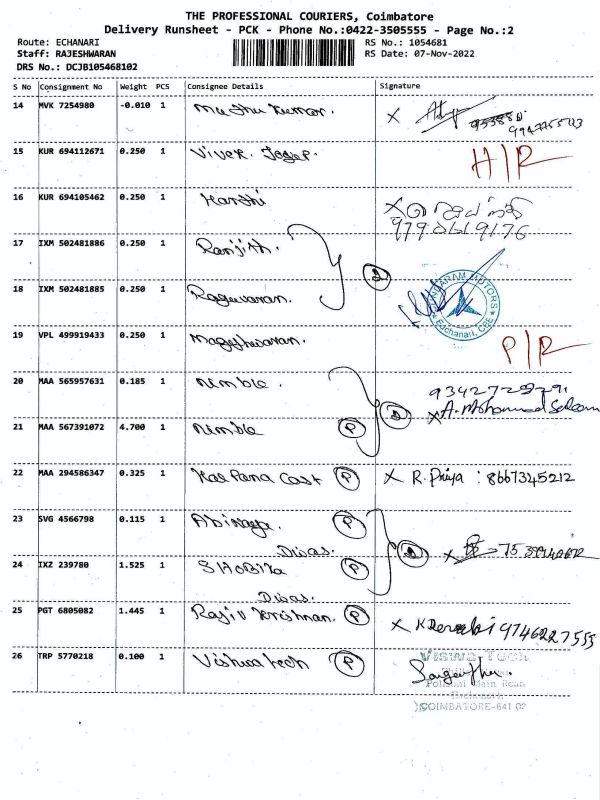 THE PROFESSIONAL COURIERS, Coimbatore
Delivery Runsheet - PCK - Phone No.:0422-3505555 - Page No.:2
Route: ECHANARI
Staff: RAJESHWARAN
DRS No.: DCJB105468102
RS No.: 1054681
RS Date: 07-Nov-2022
S No Consignment No Weight PCS Consignee Details Signature
14 MVK 7254980 -0.010 1 Muthu Kumar. X
15 KUR 694112671 0.250 1 Vivek Josep. H/R
16 KUR 694105462 0.250 1 Harshi X
9790619176
17 IXM 502481886 0.250 1 Ranjith.
2
18 IXM 502481885 0.250 1 Ragavaran.
SUNDARAM MOTORS
Eachanari, CBE
19 VPL 499919433 0.250 1 Mageshwaran. P/R
20 MAA 565957631 0.185 1 nimble.
2 X A. Mohammed Saleem
21 MAA 567391072 4.700 1 nimble P
22 MAA 294586347 0.325 1 Kalpana Cast P X R. Priya : 8667345212
23 SVG 4566798 0.115 1 Abinaya. P
Divas. 2 X
24 IXZ 239780 1.525 1 Shobika P
Divas.
25 PGT 6805082 1.445 1 Rajiv Krishnan. P X 9746227555
26 TRP 5770218 0.100 1 Vishwa tech P
Viswa Tech
Main Road
COIMBATORE-641 02